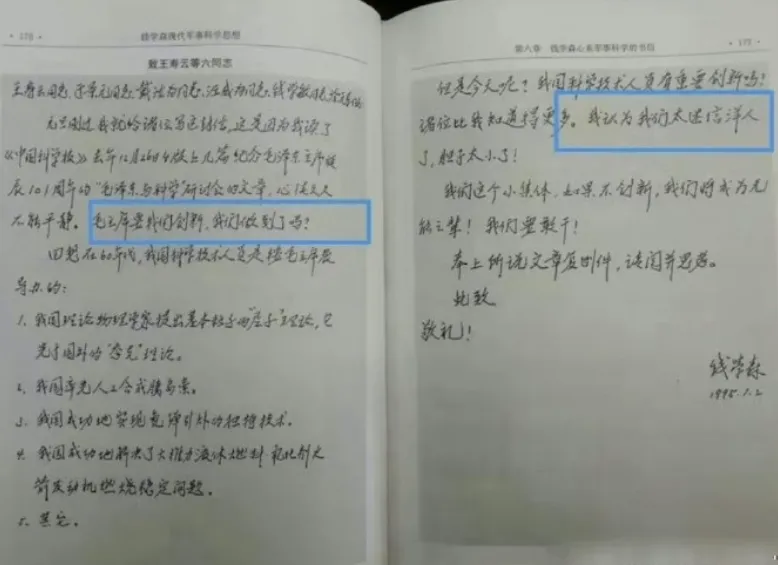 · 176 ·
钱学森现代军事科学思想
致王寿云等六同志
王寿云同志、于景元同志、戴汝为同志、汪成为同志、钱学敏同志、涂元季同志:
元旦刚过我就给诸位写这封信,这是因为我读了
《中国科学报》去年12月26日4版上几篇纪念毛泽东主席诞
辰101周年的“毛泽东与科学”研讨会的文章,心情久久
不能平静。毛主席要我们创新,我们做到了吗?
回想在60年代,我国科学技术人员是按毛主席教
导办的:
1. 我国理论物理学家提出基本粒子的“层子”理论,它
先于国外的“夸克”理论。
2. 我国率先人工合成胰岛素。
3. 我国成功地实现氢弹引爆的独特技术。
4. 我国成功地解决了大推力液体燃料氧化剂火
箭发动机燃烧稳定问题。
5. 其它。
第六章 钱学森心系军事科学的书信
· 177 ·
但是今天呢?我国科学技术人员有重要创新吗?
诸位比我知道得更多。我认为我们太迷信洋人
了,胆子太小了!
我们这个小集体,如果不创新,我们将成为无
能之辈!我们要敢干!
奉上所说文章复印件,请阅并思考。
此致
敬礼!
钱学森
1995.1.2